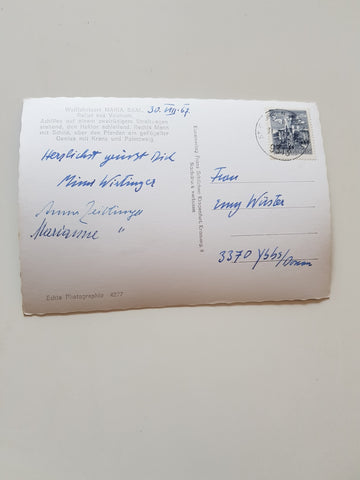 Wallfahrtsort MARIA SAAL,
Relief aus Virunum.
Achilles auf einem zweirädrigem Streitwagen
stehend, den Hektor schleifend. Rechts Mann
mit Schild, über den Pferden ein geflügelter
Genius mit Kranz und Palmzweig
30. VIII. 67.
Herzlichst grüsst Dich
Minna Wirlinger
Anna Zeitlinger
Marianne "
Frau
Emy Würster
3370 Ybbs/Donau
Kunstverlag Franz Schilcher Klagenfurt,
Nachdruck verboten
Echte Photographie 4277